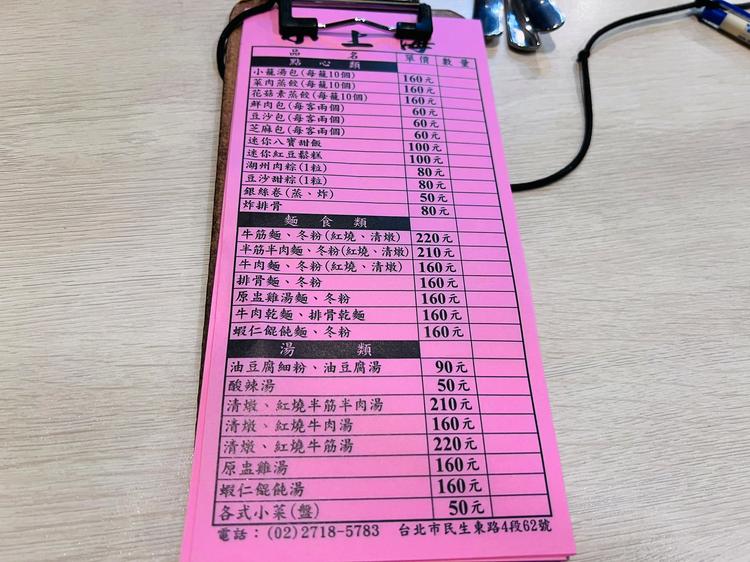 上海
品名 單價 數量
點心類
小籠湯包(每籠10個) 160元
菜肉蒸餃(每籠10個) 160元
花菇素蒸餃(每籠10個) 160元
鮮肉包(每客兩個) 60元
豆沙包(每客兩個) 60元
芝麻包(每客兩個) 60元
迷你八寶甜飯 100元
迷你紅豆鬆糕 100元
湖州肉粽(1粒) 80元
豆沙甜粽(1粒) 80元
銀絲卷(蒸、炸) 50元
炸排骨 80元
麵食類
牛筋麵、冬粉(紅燒、清燉) 220元
半筋半肉麵、冬粉(紅燒、清燉) 210元
牛肉麵、冬粉(紅燒、清燉) 160元
排骨麵、冬粉 160元
原盅雞湯麵、冬粉 160元
牛肉乾麵、排骨乾麵 160元
蝦仁餛飩麵、冬粉 160元
湯類
油豆腐細粉、油豆腐湯 90元
酸辣湯 50元
清燉、紅燒半筋半肉湯 210元
清燉、紅燒牛肉湯 160元
清燉、紅燒牛筋湯 220元
原盅雞湯 160元
蝦仁餛飩湯 160元
各式小菜(盤) 50元
電話：(02)2718-5783 台北市民生東路4段62號